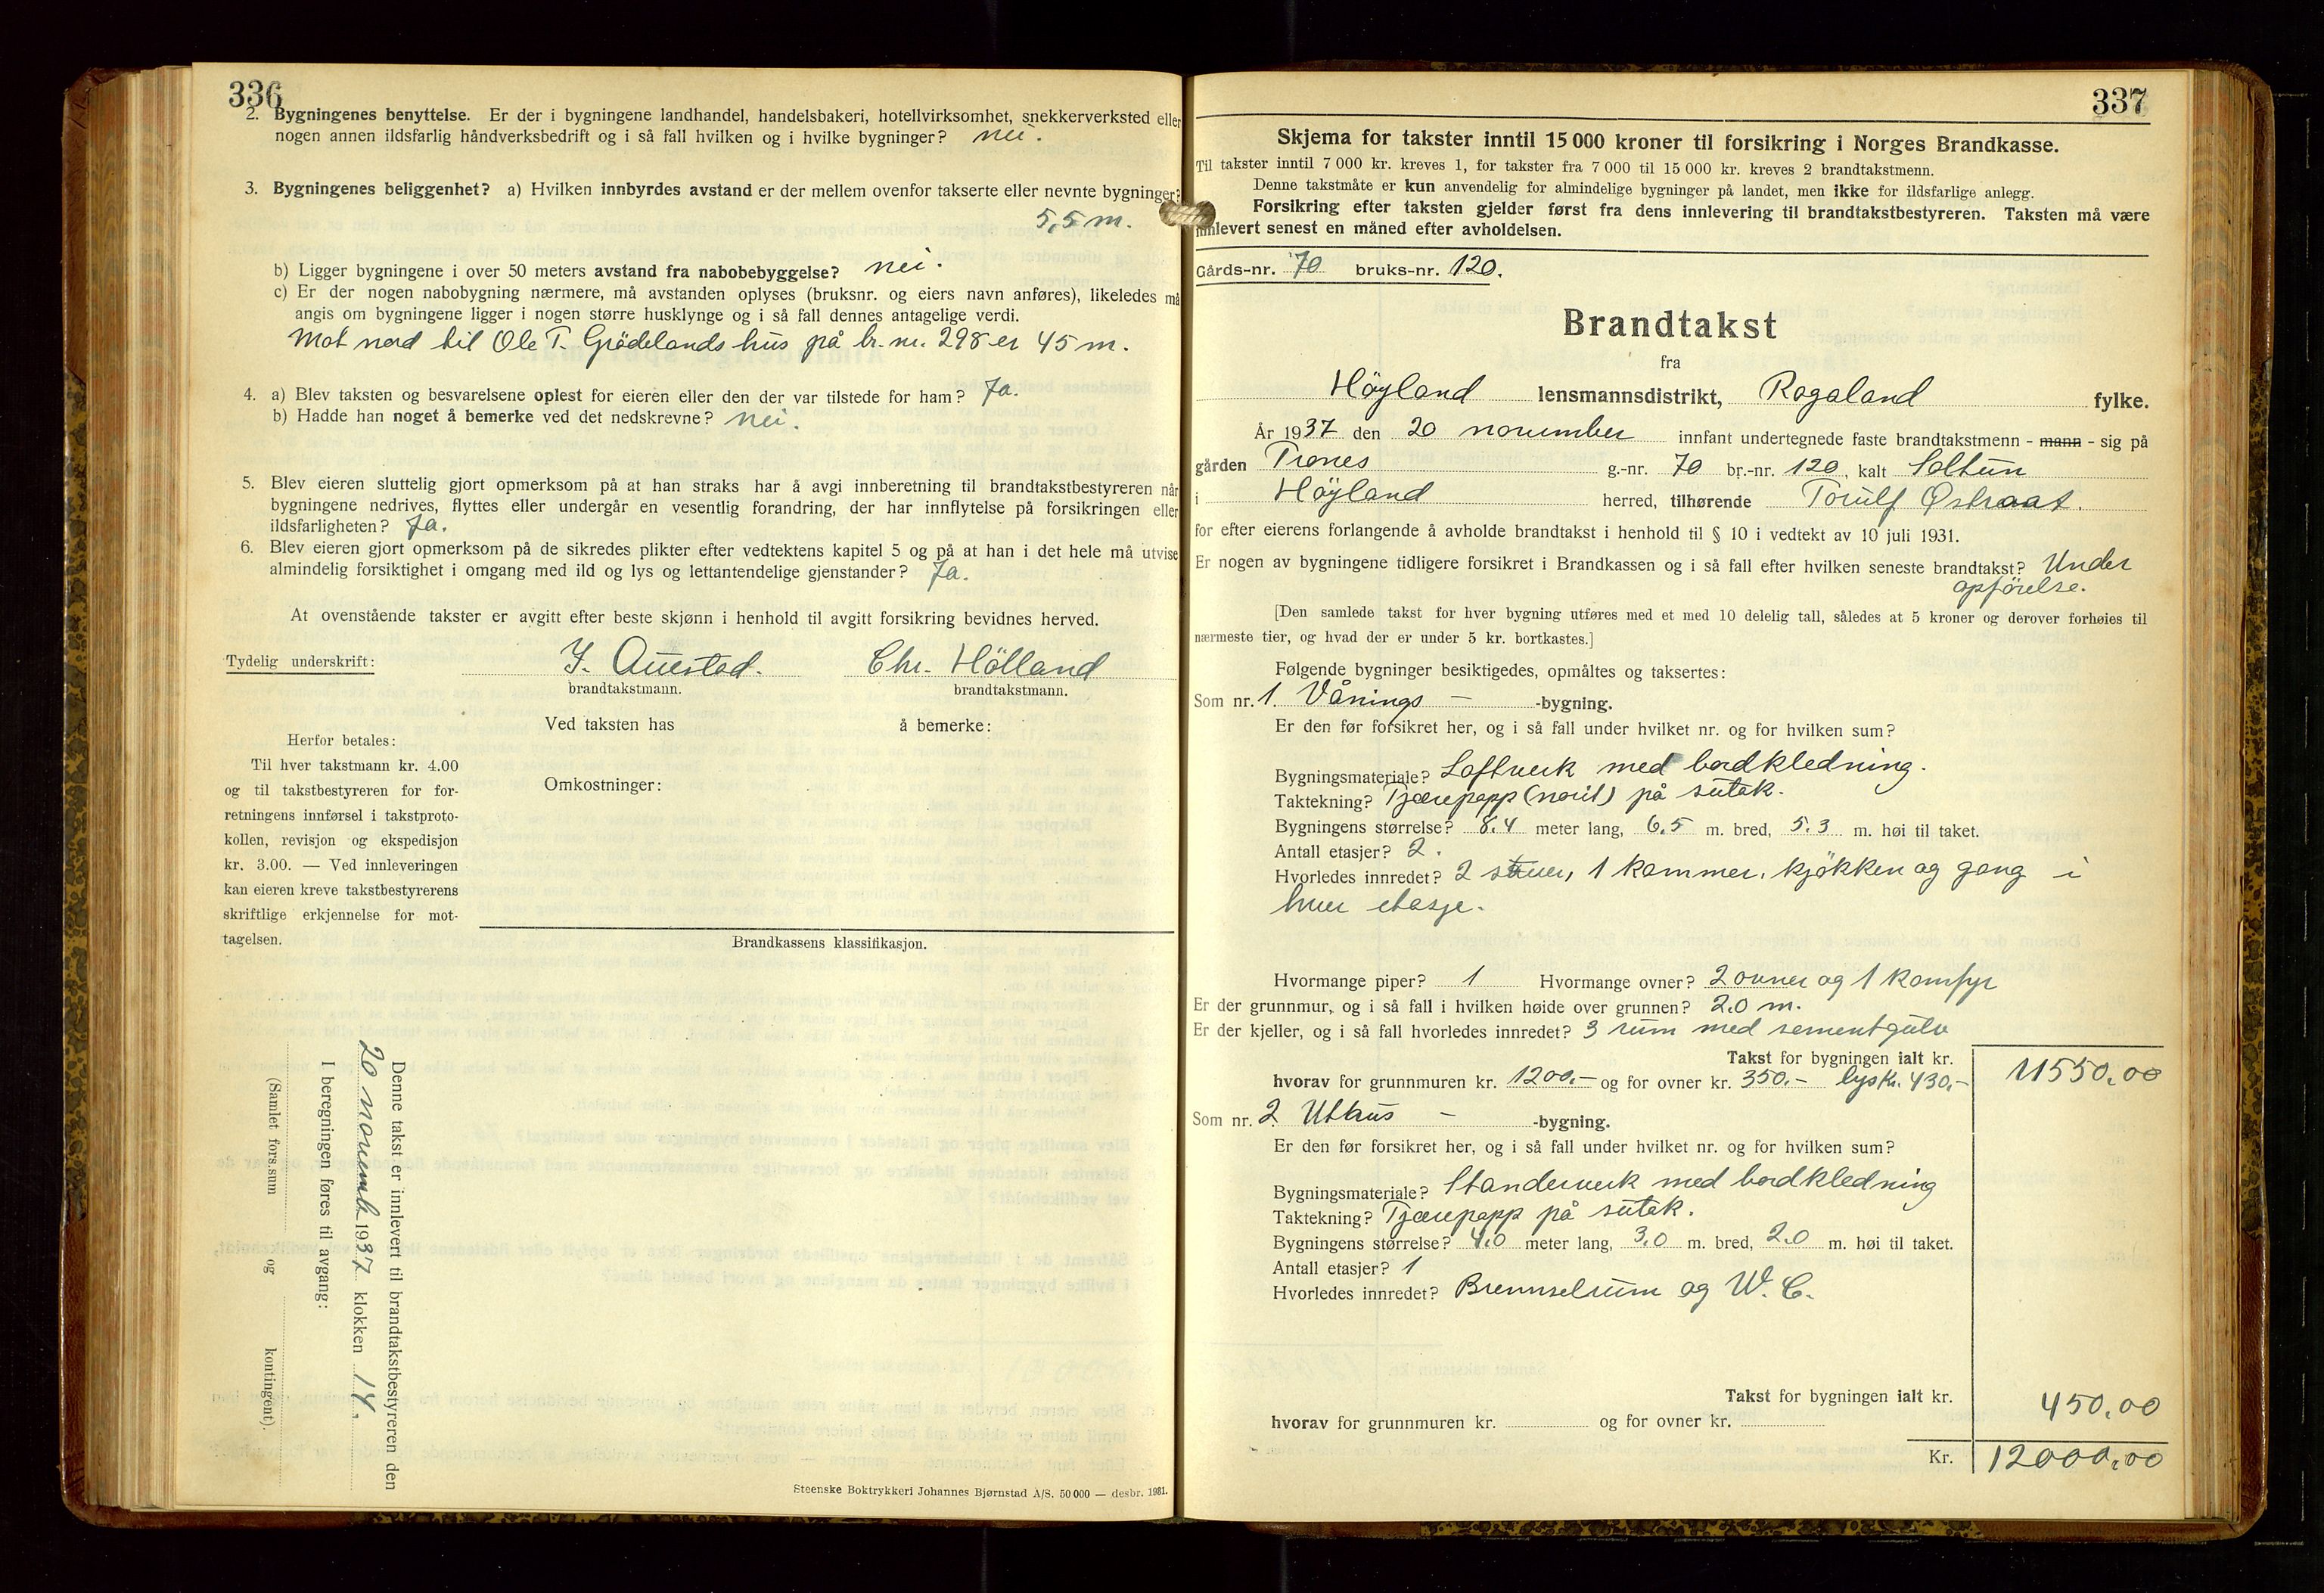 336
2. Bygningenes benyttelse. Er der i bygningene landhandel, handelsbakeri, hotellvirksomhet, snekkerverksted eller
nogen annen ildsfarlig håndverksbedrift og i så fall hvilken og i hvilke bygninger? nei.
3. Bygningenes beliggenhet? a) Hvilken innbyrdes avstand er der mellem ovenfor takserte eller nevnte bygninger?
5,5 m.
b) Ligger bygningene i over 50 meters avstand fra nabobebyggelse? nei.
c) Er der nogen nabobygning nærmere, må avstanden oplyses (bruksnr. og eiers navn anføres), likeledes må
angis om bygningene ligger i nogen større husklynge og i så fall dennes antagelige verdi.
Mot nord til Ole T. Grödelands hus på br. nr. 298 er 45 m.
4. a) Blev taksten og besvarelsene oplest for eieren eller den der var tilstede for ham? Ja.
b) Hadde han noget å bemerke ved det nedskrevne? nei.
5. Blev eieren sluttelig gjort opmerksom på at han straks har å avgi innberetning til brandtakstbestyreren når
bygningene nedrives, flyttes eller undergår en vesentlig forandring, der har innflytelse på forsikringen eller
ildsfarligheten? Ja.
6. Blev eieren gjort opmerksom på de sikredes plikter efter vedtektens kapitel 5 og på at han i det hele må utvise
almindelig forsiktighet i omgang med ild og lys og lettantendelige gjenstander? Ja.
At ovenstående takster er avgitt efter beste skjønn i henhold til avgitt forsikring bevidnes herved.
Tydelig underskrift: J. Auestad. Chr. Hölland
brandtakstmann. brandtakstmann.
Ved taksten has å bemerke:
Herfor betales:
Til hver takstmann kr. 4.00
og til takstbestyreren for for-
retningens innførsel i takstproto-
kollen, revisjon og ekspedisjon
kr. 3.00. — Ved innleveringen
kan eieren kreve takstbestyrerens
skriftlige erkjennelse for mot-
tagelsen.
Omkostninger:
Brandkassens klassifikasjon.
Denne takst er innlevert til brandtakstbestyreren den
20 november 1937 klokken 14.
I beregningen føres til avgang:
(Samlet fors.sum og kontingent).
Steenske Boktrykkeri Johannes Bjørnstad A/S. 50 000 — desbr. 1931.
337
Skjema for takster inntil 15 000 kroner til forsikring i Norges Brandkasse.
Til takster inntil 7 000 kr. kreves 1, for takster fra 7 000 til 15 000 kr. kreves 2 brandtakstmenn.
Denne takstmåte er kun anvendelig for almindelige bygninger på landet, men ikke for ildsfarlige anlegg.
Forsikring efter taksten gjelder først fra dens innlevering til brandtakstbestyreren. Taksten må være
innlevert senest en måned efter avholdelsen.
Gårds-nr. 70 bruks-nr. 120.
Brandtakst
fra
Höyland lensmannsdistrikt, Rogaland fylke.
År 1937 den 20 november innfant undertegnede faste brandtakstmenn - mann - sig på
gården Trones g.-nr. 70 br.-nr. 120, kalt Soltun
i Höyland herred, tilhørende Torulf Østraat.
for efter eierens forlangende å avholde brandtakst i henhold til § 10 i vedtekt av 10 juli 1931.
Er nogen av bygningene tidligere forsikret i Brandkassen og i så fall efter hvilken seneste brandtakst? Under
opførelse.
[Den samlede takst for hver bygning utføres med et med 10 delelig tall, således at 5 kroner og derover forhøies til
nærmeste tier, og hvad der er under 5 kr. bortkastes.]
Følgende bygninger besiktigedes, opmåltes og taksertes:
Som nr. 1. Vånings - -bygning.
Er den før forsikret her, og i så fall under hvilket nr. og for hvilken sum?
Bygningsmateriale? Loftverk med bordkledning.
Taktekning? Tjærepapp (norit) på sutak.
Bygningens størrelse? 8.4 meter lang, 6.5 m. bred, 5.3 m. høi til taket.
Antall etasjer? 2.
Hvorledes innredet? 2 stuer, 1 kammer, kjøkken og gang i
hver etasje.
Hvormange piper? 1 Hvormange ovner? 2 ovner og 1 komfyr
Er der grunnmur, og i så fall i hvilken høide over grunnen? 2.0 m.
Er der kjeller, og i så fall hvorledes innredet? 3 rum med sementgulv
Takst for bygningen ialt kr. 11550,00
hvorav for grunnmuren kr. 1200,- og for ovner kr. 350.- lys kr. 430,-
Som nr. 2. Uthus - -bygning.
Er den før forsikret her, og i så fall under hvilket nr. og for hvilken sum?
Bygningsmateriale? Standerverk med bordkledning
Taktekning? Tjærepapp på sutak.
Bygningens størrelse? 4.0 meter lang, 3.0 m. bred, 2.0 m. høi til taket.
Antall etasjer? 1
Hvorledes innredet? Brennselrum og W. C.
Takst for bygningen ialt kr. 450,00
hvorav for grunnmuren kr. og for ovner kr.
Kr. 12000,00